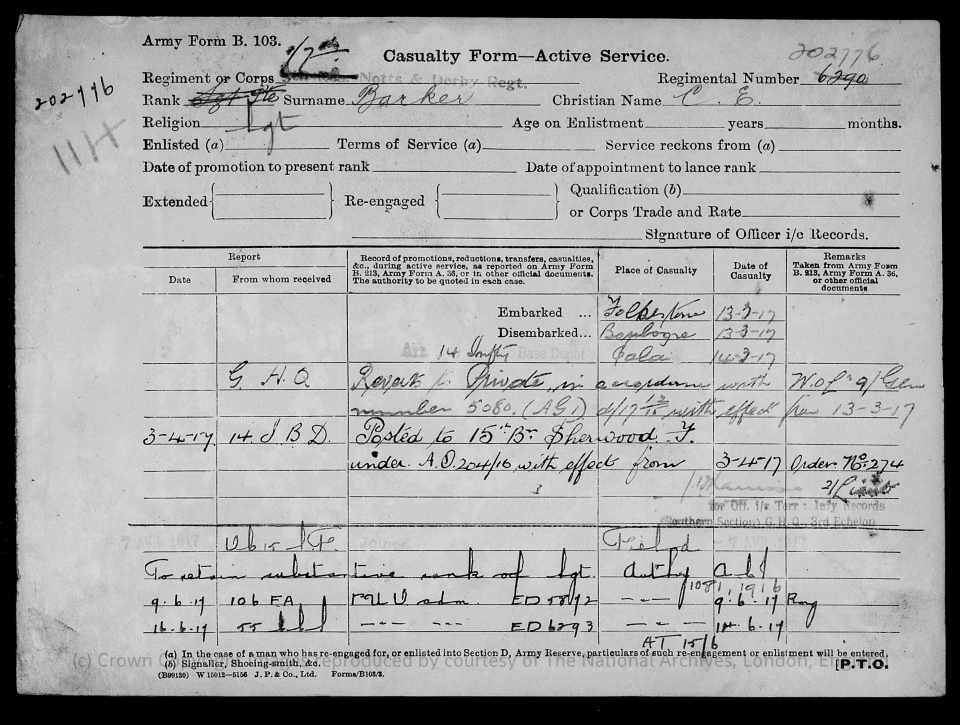 Army Form B. 103. 2/7th 202776
Casualty Form—Active Service.
Regiment or Corps Notts & Derby Regt. Regimental Number 6290
202776
Rank Sgt Pte Surname Barker Christian Name C. E.
Religion Age on Enlistment years months.
Sgt
11H
Enlisted (a) Terms of Service (a) Service reckons from (a)
Date of promotion to present rank Date of appointment to lance rank
Extended Re-engaged Qualification (b)
or Corps Trade and Rate
Signature of Officer i/c Records.
Report
Date From whom received
Record of promotions, reductions, transfers, casualties,
&c., during active service, as reported on Army Form
B. 213, Army Form A. 36, or in other official documents.
The authority to be quoted in each case.
Place of Casualty
Date of
Casualty
Remarks
Taken from Army Form
B. 213, Army Form A. 36,
or other official
documents
Embarked ... Folkestone 13-3-17
Disembarked... Boulogne 13-3-17
14 Infty Base Depot Cala 14-3-17
G. H. Q Reverts to Private, in accordance with W.O. Lr 9/Gen
number 5080. (AG1) d/17 with effect from 13-3-17
3-4-17 14 I B D. Posted to 15th Bn Sherwood F.
under A.O. 204/16 with effect from 3-4-17 Order No 274
2/Lieut
for Off. i/c Terr: Infy Records
(Southern Section) G.H.Q. 3rd Echelon
7 APR 1917 Joined Field 7 APR 1917
To retain substantive rank of Sgt. Authy
1081/1916
9.6.17 106 FA adm. ED 5592 9.6.17
16.6.17 55 ED 6293 14.6.17
AT 15/6
(a) In the case of a man who has re-engaged for, or enlisted into Section D, Army Reserve, particulars of such re-engagement or enlistment will be entered.
(b) Signaller, Shoeing-smith, &c.
(c) Crown Co reproduced by courtesy of The National Archives, London, En
[P.T.O.
(B99130) W 15012—5156 J. P. & Co., Ltd. Forms/B103/2.